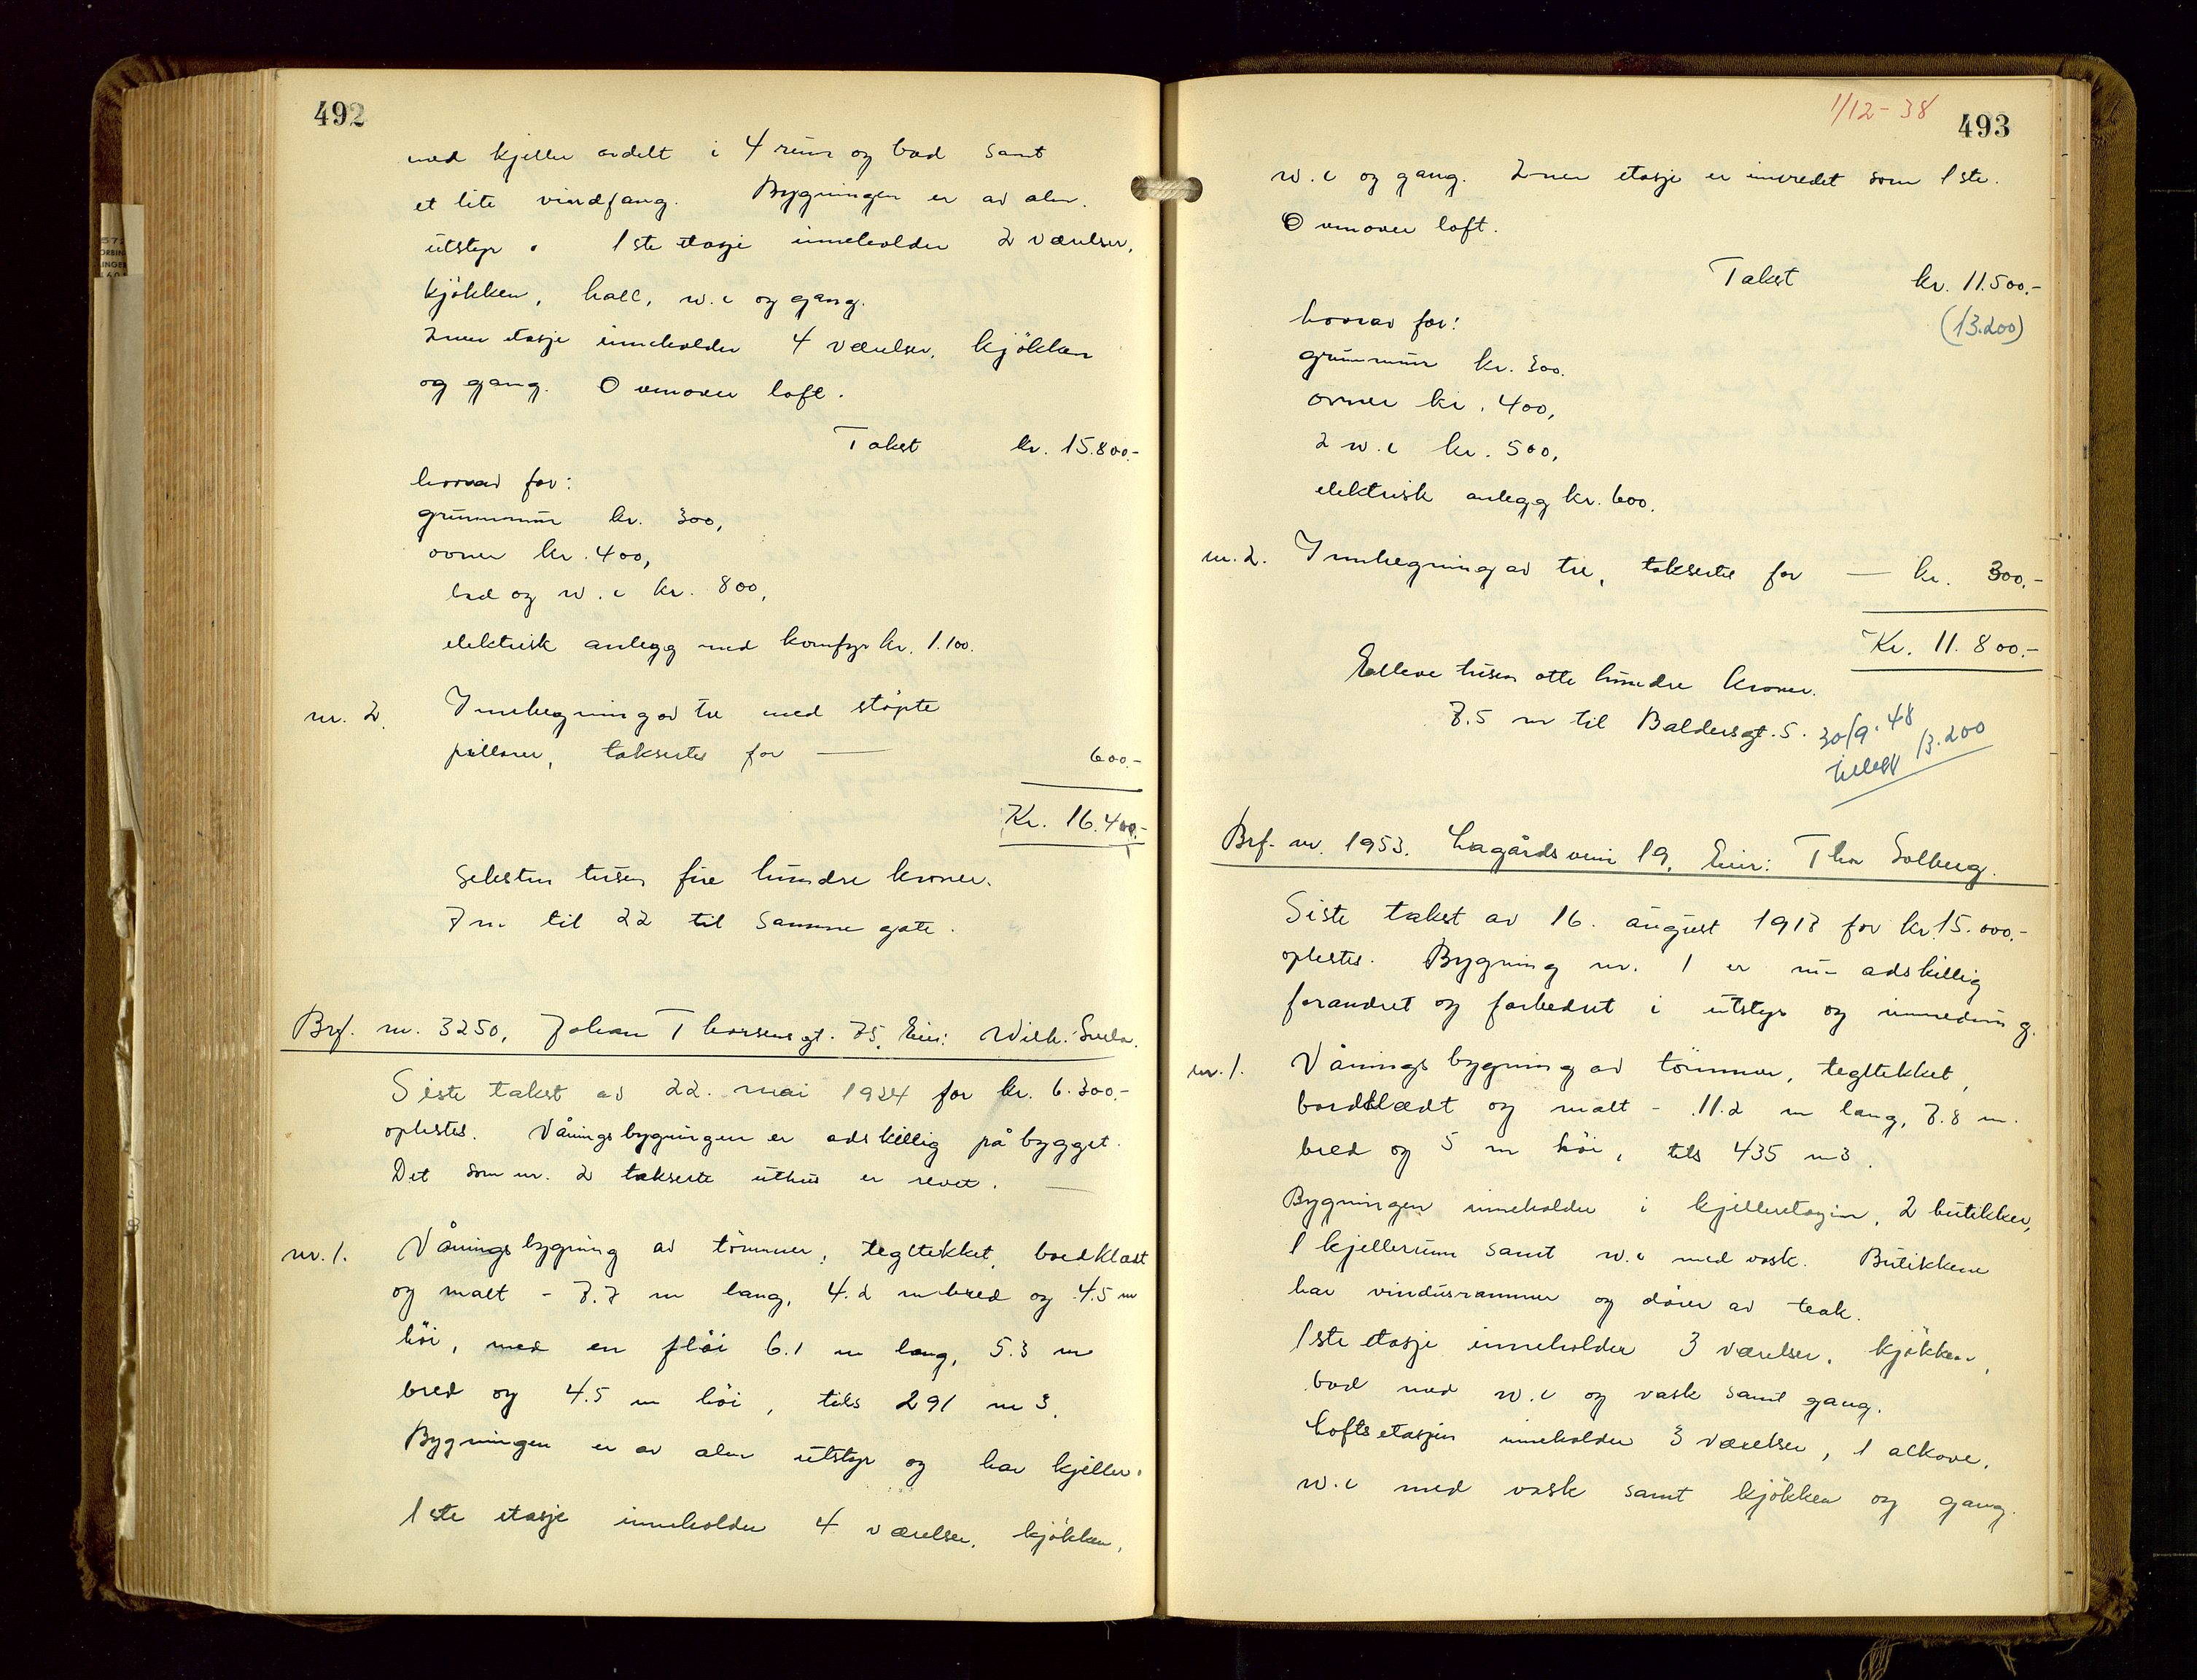 492
med kjeller avdelt i 4 rum og bad samt
et lite vindfang. Bygningen er av alm.
utstyr. 1ste etasje inneholder 2 værelser,
kjökken, hall, w.c og gang.
2nen etasje inneholder 4 værelser, kjökken
og gang. Ovenover loft.
Takst kr. 15.800.-
hvorav for:
grunnmur kr. 300,
ovner kr. 400,
bad og w.c kr. 800,
elektrisk anlegg med komfyr kr. 1.100.
nr. 2. Innhegning av tre med stöpte
pillarer, takseres for — 600.-
Kr. 16.400.-
Seksten tusen fire hundre kroner.
7 m til 22 til samme gate.
Brf. nr. 3250, Johan Thorsens gt. 75, Eier: Wilh.
Siste takst av 22. mai 1924 for kr. 6.300.-
oplestes. Våningsbygningen er adskillig påbygget.
Det som nr. 2 takserte uthus er revet. —
nr. 1. Våningsbygning av tömmer, tegltekket, bordklædt
og malt - 7.7 m lang, 4.2 m bred og 4.5 m
höi, med en flöi 6.1 m lang, 5.3 m
bred og 4.5 m höi, tils 291 m3.
Bygningen er av alm utstyr og har kjeller.
1ste etasje inneholder 4 værelser, kjökken,
1/12-38
493
w.c og gang. 2nen etasje er innredet som 1ste.
Ovenover loft.
Takst kr. 11.500.-
(13.200)
hvorav for:
grunnmur kr. 300.
ovner kr. 400,
2 w.c kr. 500,
elektrisk anlegg kr. 600.
nr. 2. Innhegning av tre, takseres for — kr. 300.-
Kr. 11.800.-
Elleve tusen otte hundre kroner.
7.5 m til Baldersgt. 5.
30/9.48
tillegg 13.200
Brf. nr. 1953. Lagårdsveien 19, Eier: Thor Solberg.
Siste takst av 16. august 1917 for kr. 15.000.-
oplestes. Bygning nr. 1 er nu adskillig
forandret og forbedret i utstyr og innredning.
nr. 1. Våningsbygning av tömmer, tegltekket,
bordklædt og malt - 11.2 m lang, 7.8 m.
bred og 5 m höi, tils 435 m3.
Bygningen inneholder i kjelleretagen, 2 butikker,
1 kjellerrum samt w.c med vask. Butikkene
har vindusrammer og dörer av teak.
1ste etasje inneholder 3 værelser, kjökken,
bad med w.c og vask samt gang.
Loftsetasjen inneholder 3 værelser, 1 alkove,
w.c med vask samt kjökken og gang.